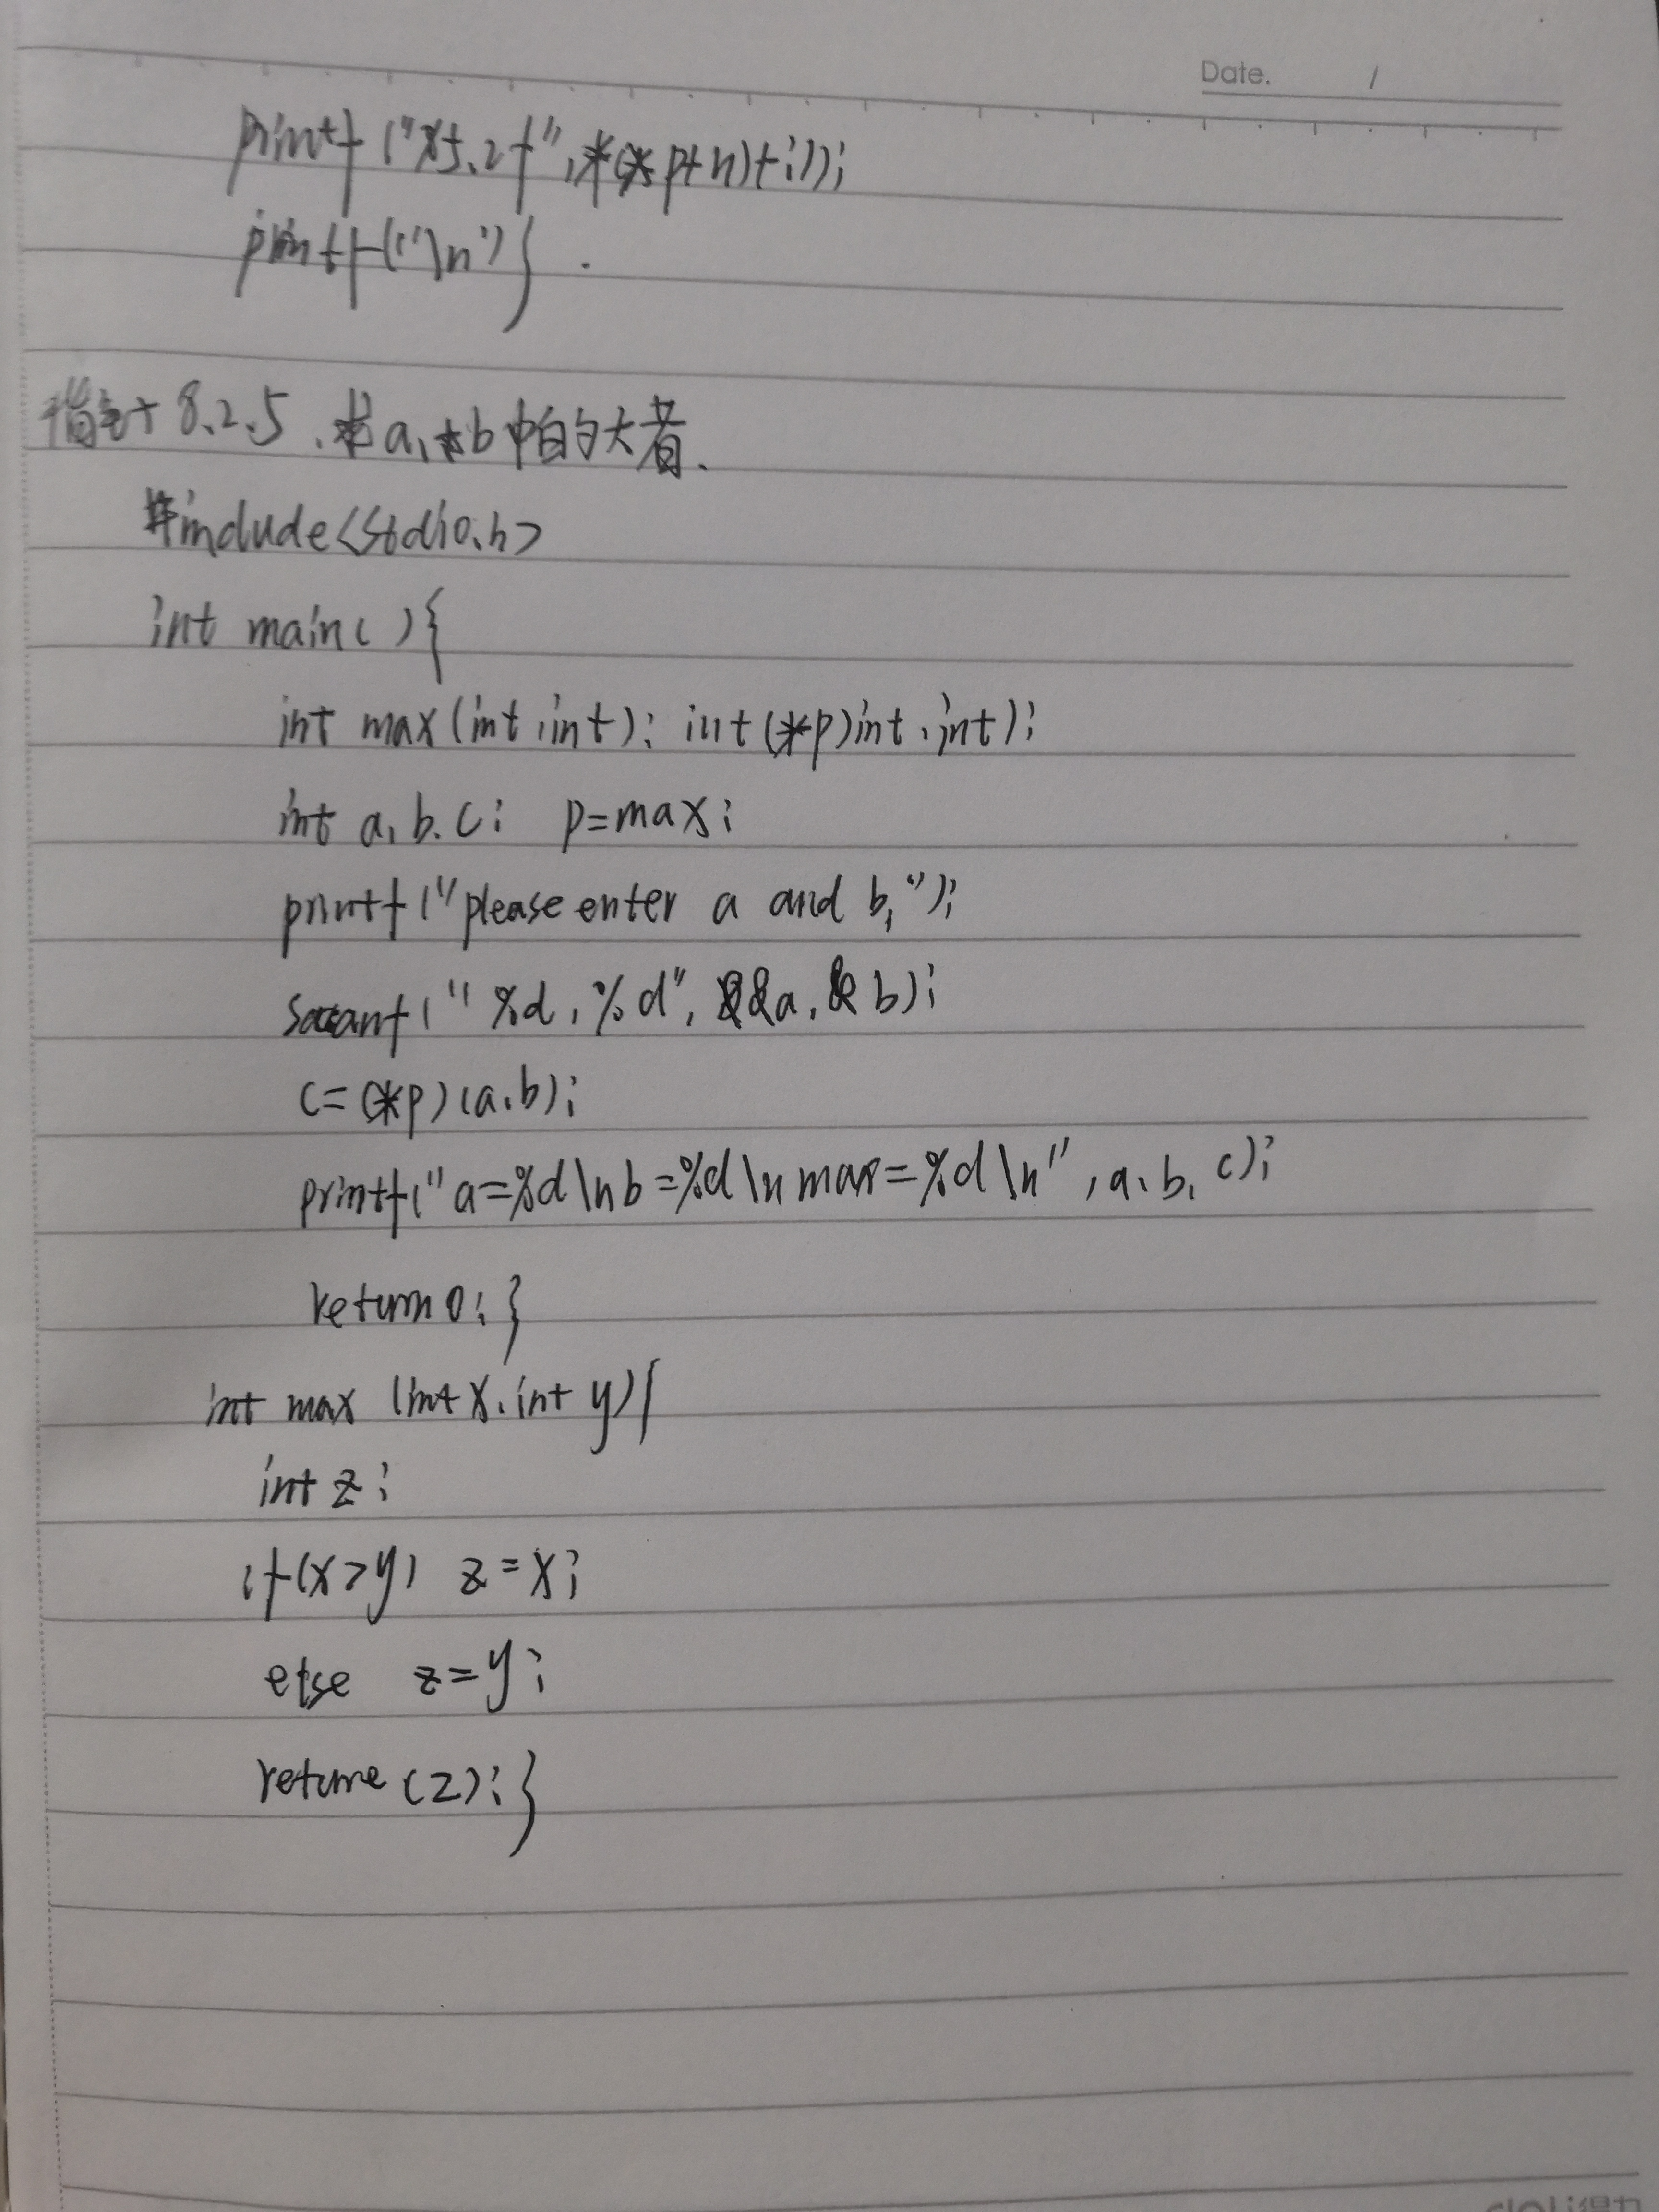 Date. /
printf ("%5.2f",*(*p+n)+i));
printf("\n")}
指针 8.2.5.求a,b中的大者.
#include<stdio.h>
int main( ){
int max(int,int); int(*p)int,int);
int a,b,c; p=max;
printf("please enter a and b,");
scanf("%d,%d",&a,&b);
c=(*p)(a,b);
printf("a=%d\nb=%d\nmax=%d\n",a,b,c);
return 0;}
int max (int x,int y){
int z;
if(x>y) z=x;
else z=y;
return(z);}